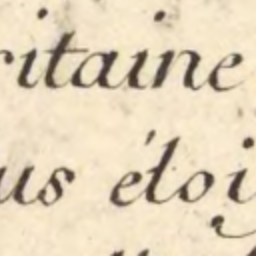 ritaine
us éloi